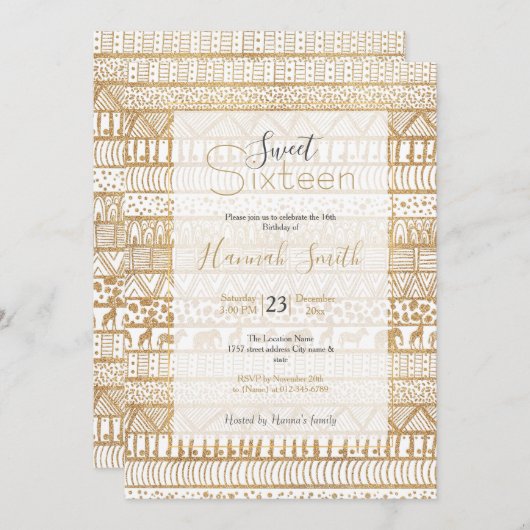 Sweet
Sixteen
Please join us to celebrate the 16th
Birthday of
Hannah Smith
Saturday 23 December
3:00 PM 20xx
The Location Name
1757 street address City name &
state
RSVP by November 20th
to {Name} at 012-345-6789
Hosted by Hanna's family